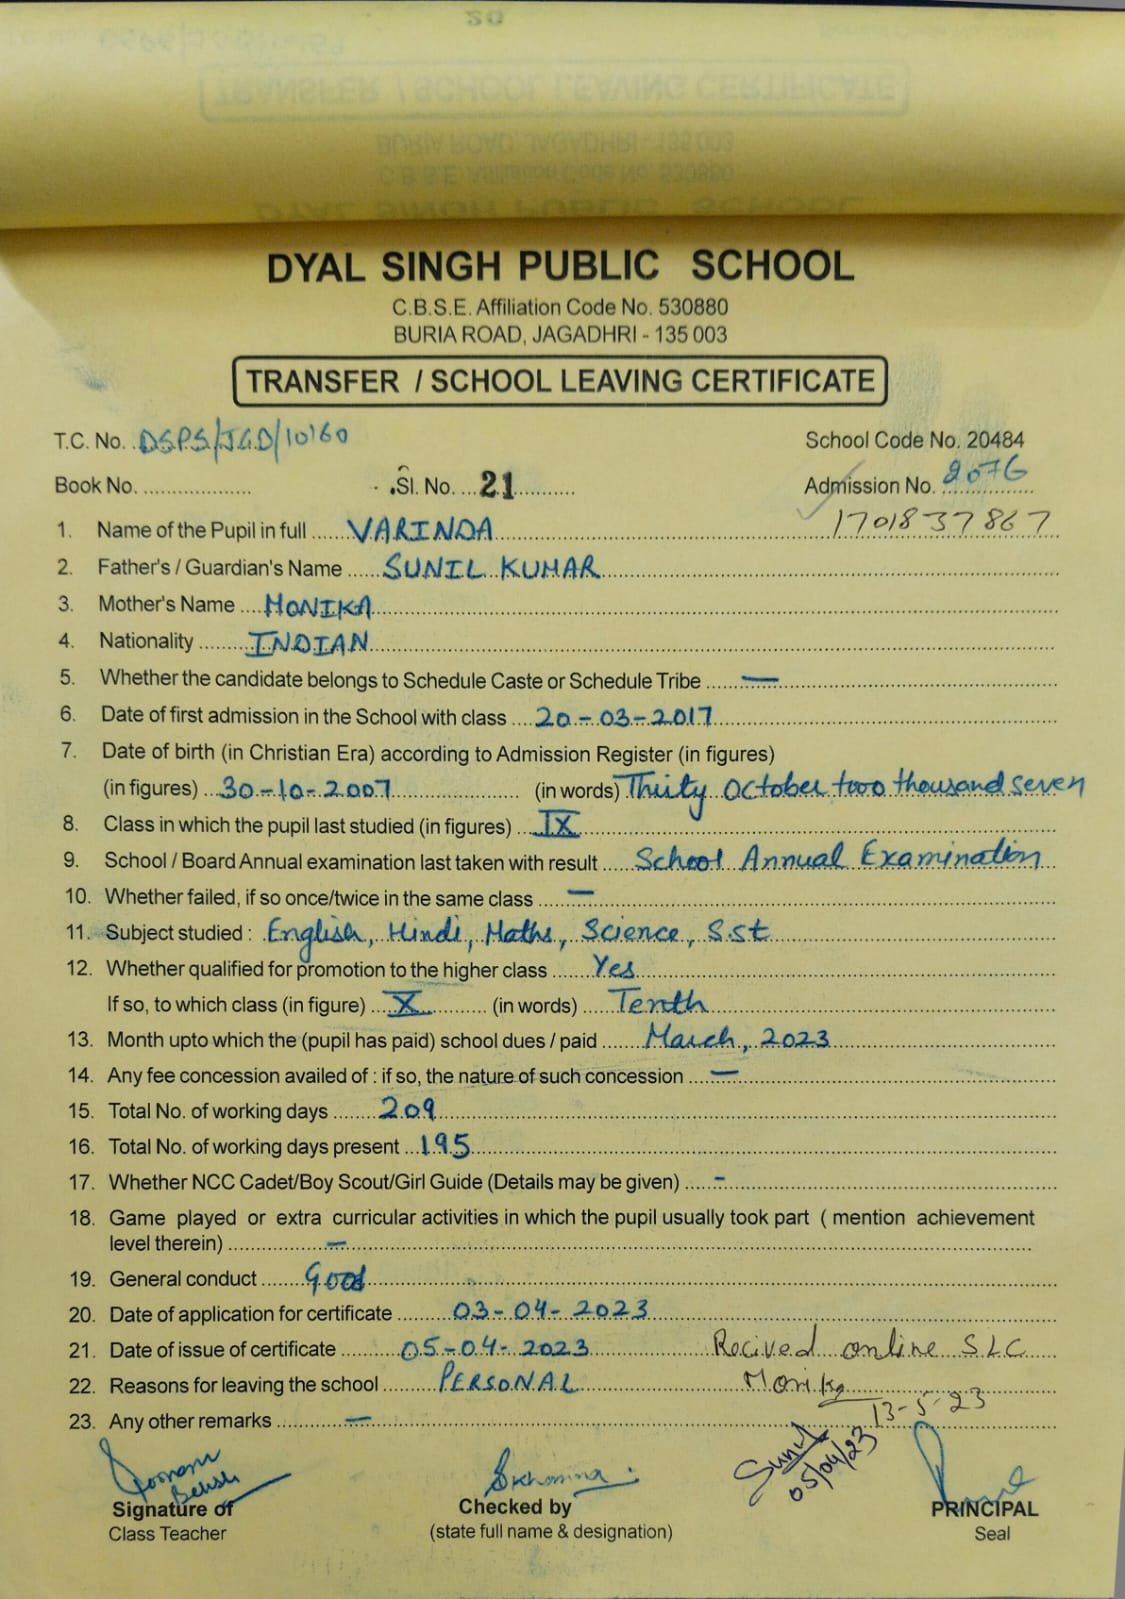 DYAL SINGH PUBLIC SCHOOL
C.B.S.E. Affiliation Code No. 530880
BURIA ROAD, JAGADHRI - 135 003
TRANSFER / SCHOOL LEAVING CERTIFICATE
T.C. No. DSPS/JGD/10160 School Code No. 20484
Book No. Sl. No. 21 Admission No. 2076
1701837867
1. Name of the Pupil in full VARINDA
2. Father's / Guardian's Name SUNIL KUMAR
3. Mother's Name MONIKA
4. Nationality INDIAN
5. Whether the candidate belongs to Schedule Caste or Schedule Tribe —
6. Date of first admission in the School with class 20-03-2017
7. Date of birth (in Christian Era) according to Admission Register (in figures)
(in figures) 30-10-2007 (in words) Thirty October two thousand seven
8. Class in which the pupil last studied (in figures) IX
9. School / Board Annual examination last taken with result School Annual Examination
10. Whether failed, if so once/twice in the same class —
11. Subject studied : English, Hindi, Maths, Science, S.St
12. Whether qualified for promotion to the higher class Yes
If so, to which class (in figure) X (in words) Tenth
13. Month upto which the (pupil has paid) school dues / paid March, 2023
14. Any fee concession availed of : if so, the nature of such concession —
15. Total No. of working days 209
16. Total No. of working days present 195
17. Whether NCC Cadet/Boy Scout/Girl Guide (Details may be given) -
18. Game played or extra curricular activities in which the pupil usually took part ( mention achievement
level therein) —
19. General conduct Good
20. Date of application for certificate 03-04-2023
21. Date of issue of certificate 05-04-2023 Recived online SLC
22. Reasons for leaving the school PERSONAL Monika
13-5-23
23. Any other remarks —
Sunil
05/04/23
Signature of Checked by PRINCIPAL
Class Teacher (state full name & designation) Seal